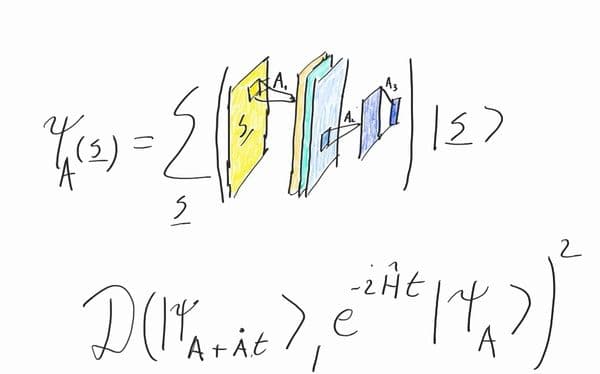 Ψ_A(s̲) = Σ_s̲ ( s̲, A₁ A₂ A₃ ) |s̲⟩
D(|Ψ_{A+Ȧt}⟩, e^{-iĤt}|Ψ_A⟩)²